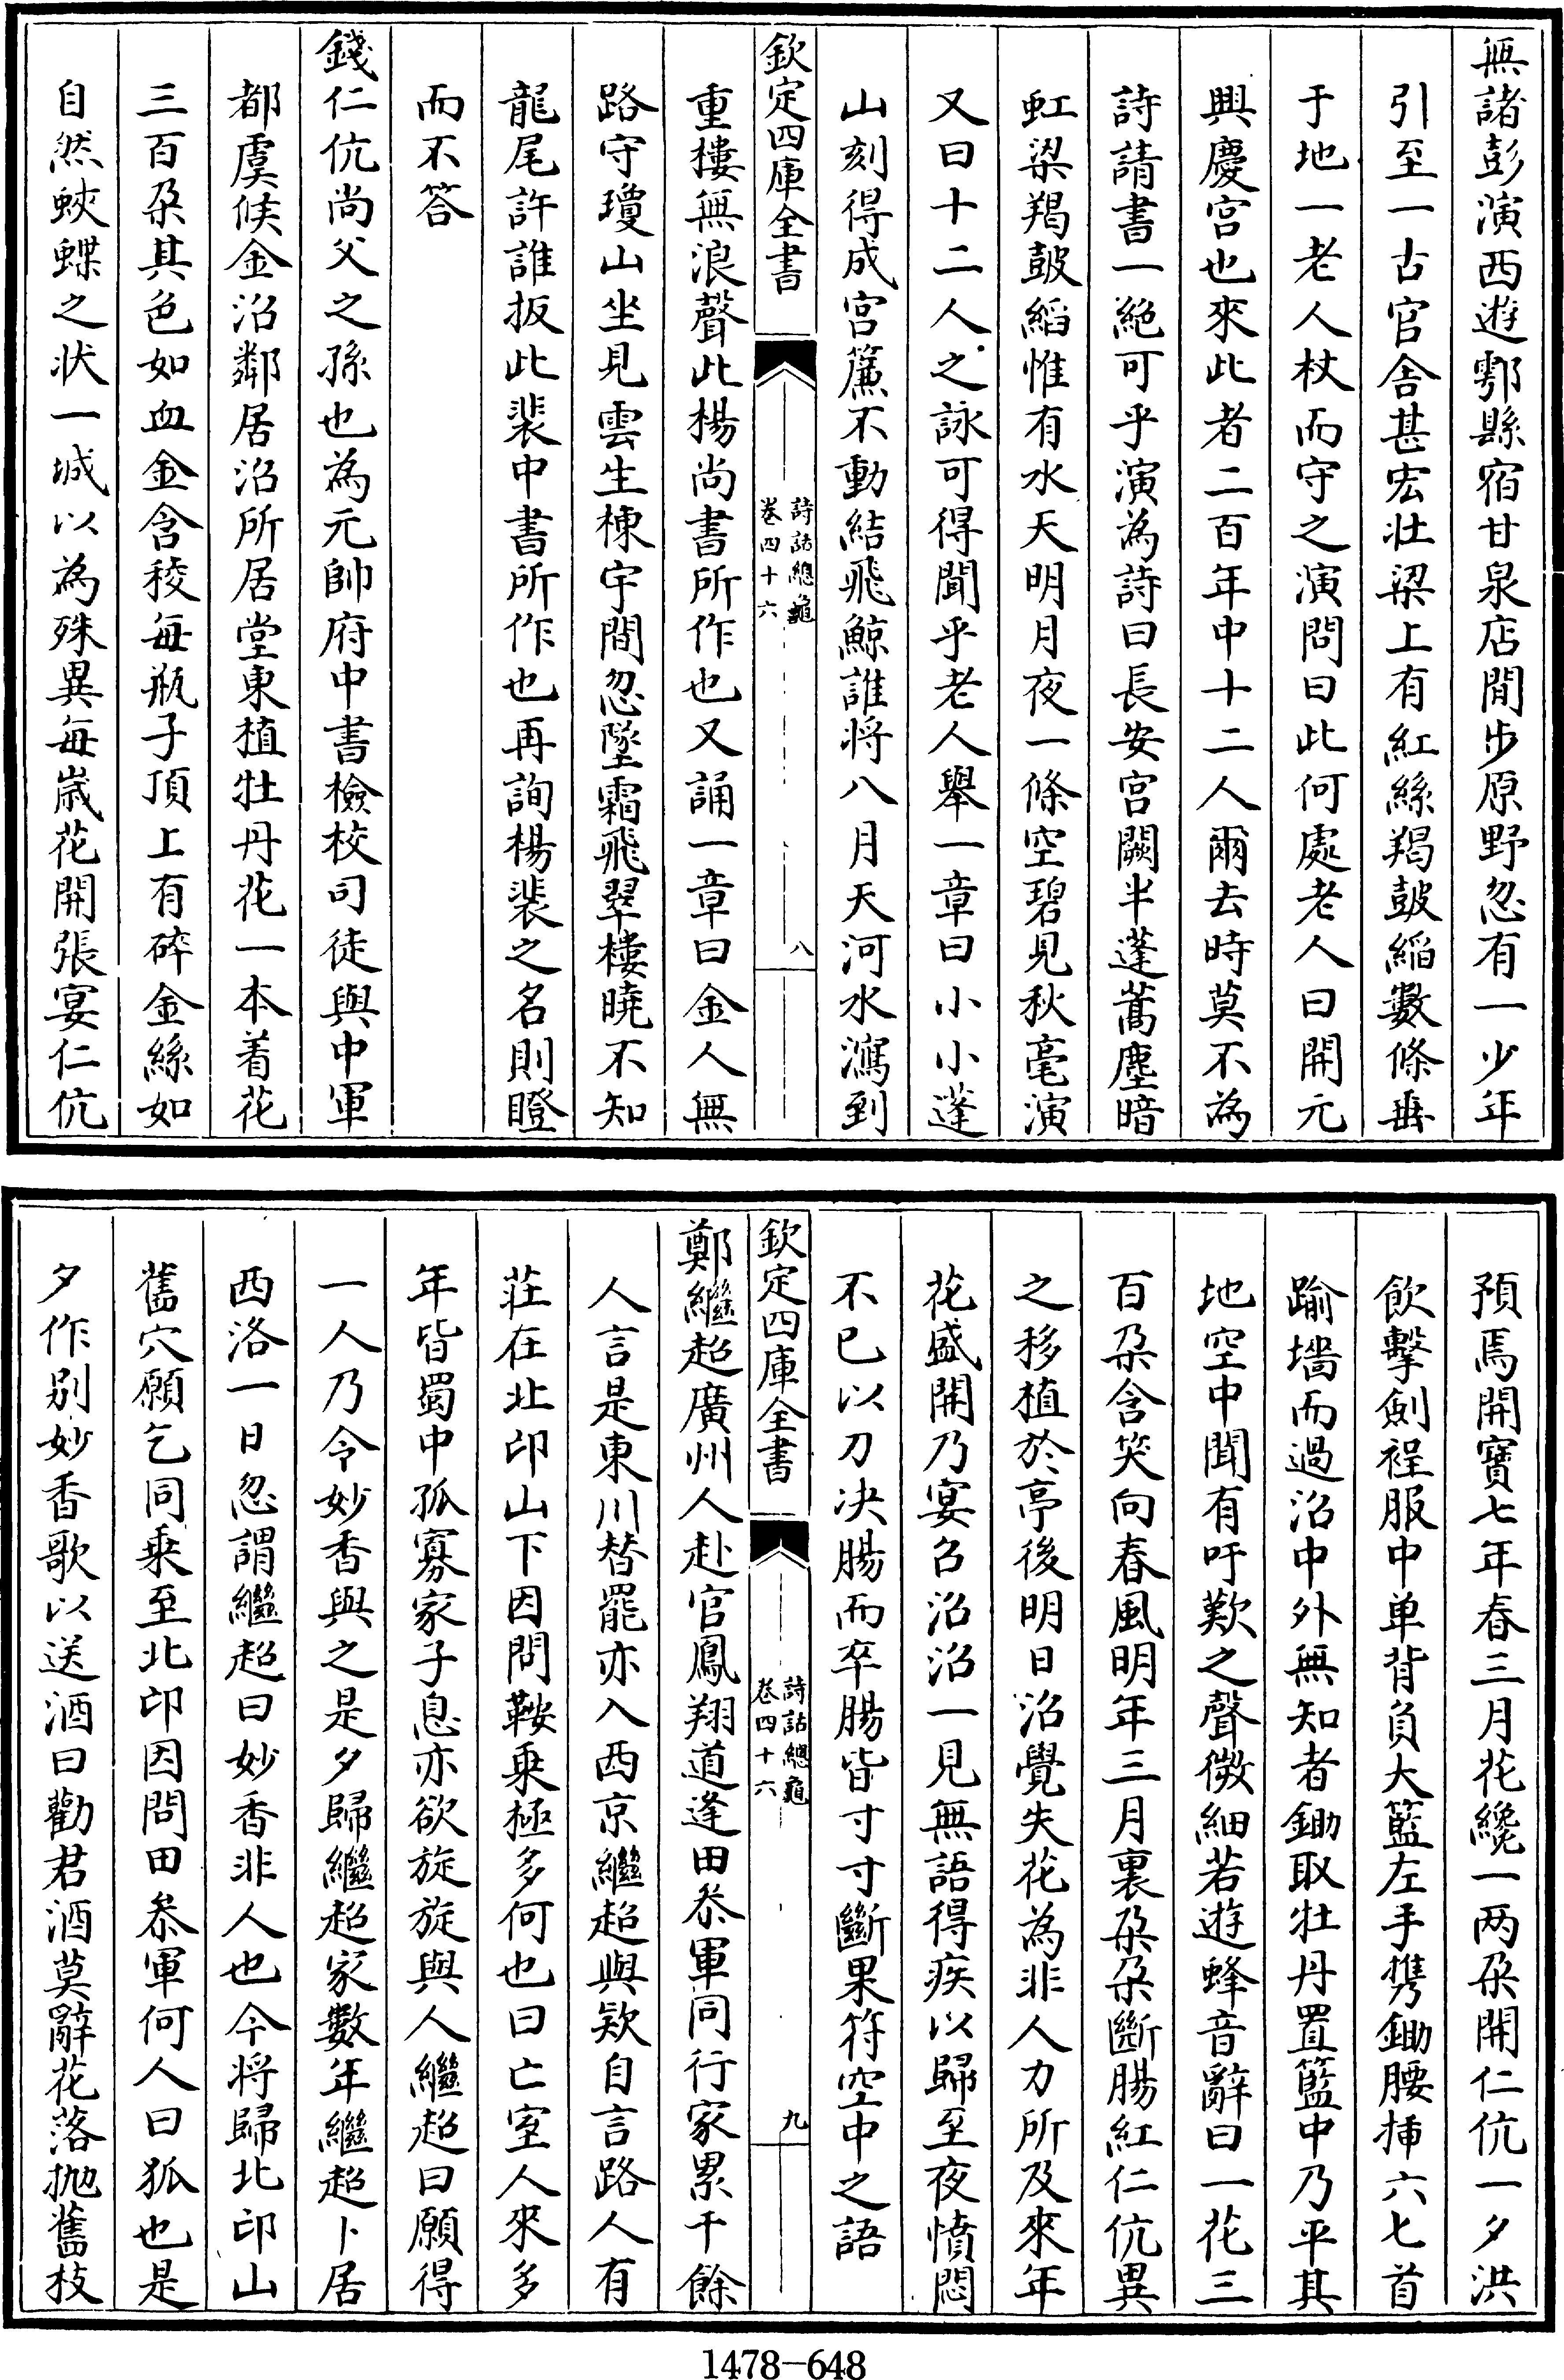 無諸彭演西遊鄠縣宿甘泉店閒步原野忽有一少年
引至一古官舍甚宏壯梁上有紅絲羯皷縚數條垂
于地一老人杖而守之演問曰此何處老人曰開元
興慶宮也來此者二百年中十二人爾去時莫不為
詩請書一絕可乎演為詩曰長安宮闕半蓬蒿塵暗
虹梁羯皷縚惟有水天明月夜一條空碧見秋毫演
又曰十二人之詠可得聞乎老人舉一章曰小小蓬
山刻得成宮簾不動結飛鯨誰將八月天河水瀉到
欽定四庫全書
詩話總龜
卷四十六
八
重樓無浪聲此楊尚書所作也又誦一章曰金人無
路守瓊山坐見雲生棟宇間忽墜霜飛翠樓曉不知
龍尾許誰扳此裴中書所作也再詢楊裴之名則瞪
而不答
錢仁伉尚父之孫也為元帥府中書檢校司徒與中軍
都虞候金沼鄰居沼所居堂東植牡丹花一本着花
三百朶其色如血金含稜每瓶子頂上有碎金絲如
自然蛺蝶之状一城以為殊異每歲花開張宴仁伉
預焉開寶七年春三月花纔一两朶開仁伉一夕洪
飲擊劍裎服中单背負大籃左手携鋤腰揷六七首
踰墻而過沼中外無知者鋤取牡丹置籃中乃平其
地空中聞有吁歎之聲微細若遊蜂音辭曰一花三
百朶含笑向春風明年三月裏朶朶斷腸紅仁伉異
之移植於亭後明日沼覺失花為非人力所及來年
花盛開乃宴召沼沼一見無語得疾以歸至夜憤悶
不已以刀决腸而卒腸皆寸寸斷果符空中之語
欽定四庫全書
詩話總龜
卷四十六
九
鄭繼超廣州人赴官鳳翔道逢田叅軍同行家累千餘
人言是東川替罷亦入西京繼超與欵自言路人有
莊在北邙山下因問鞍乘極多何也曰亡室人來多
年皆蜀中孤寡家子息亦欲旋旋與人繼超曰願得
一人乃令妙香與之是夕歸繼超家數年繼超卜居
西洛一日忽謂繼超曰妙香非人也今将歸北邙山
舊穴願乞同乘至北邙因問田叅軍何人曰狐也是
夕作别妙香歌以送酒曰勸君酒莫辭花落抛舊枝
1478-648